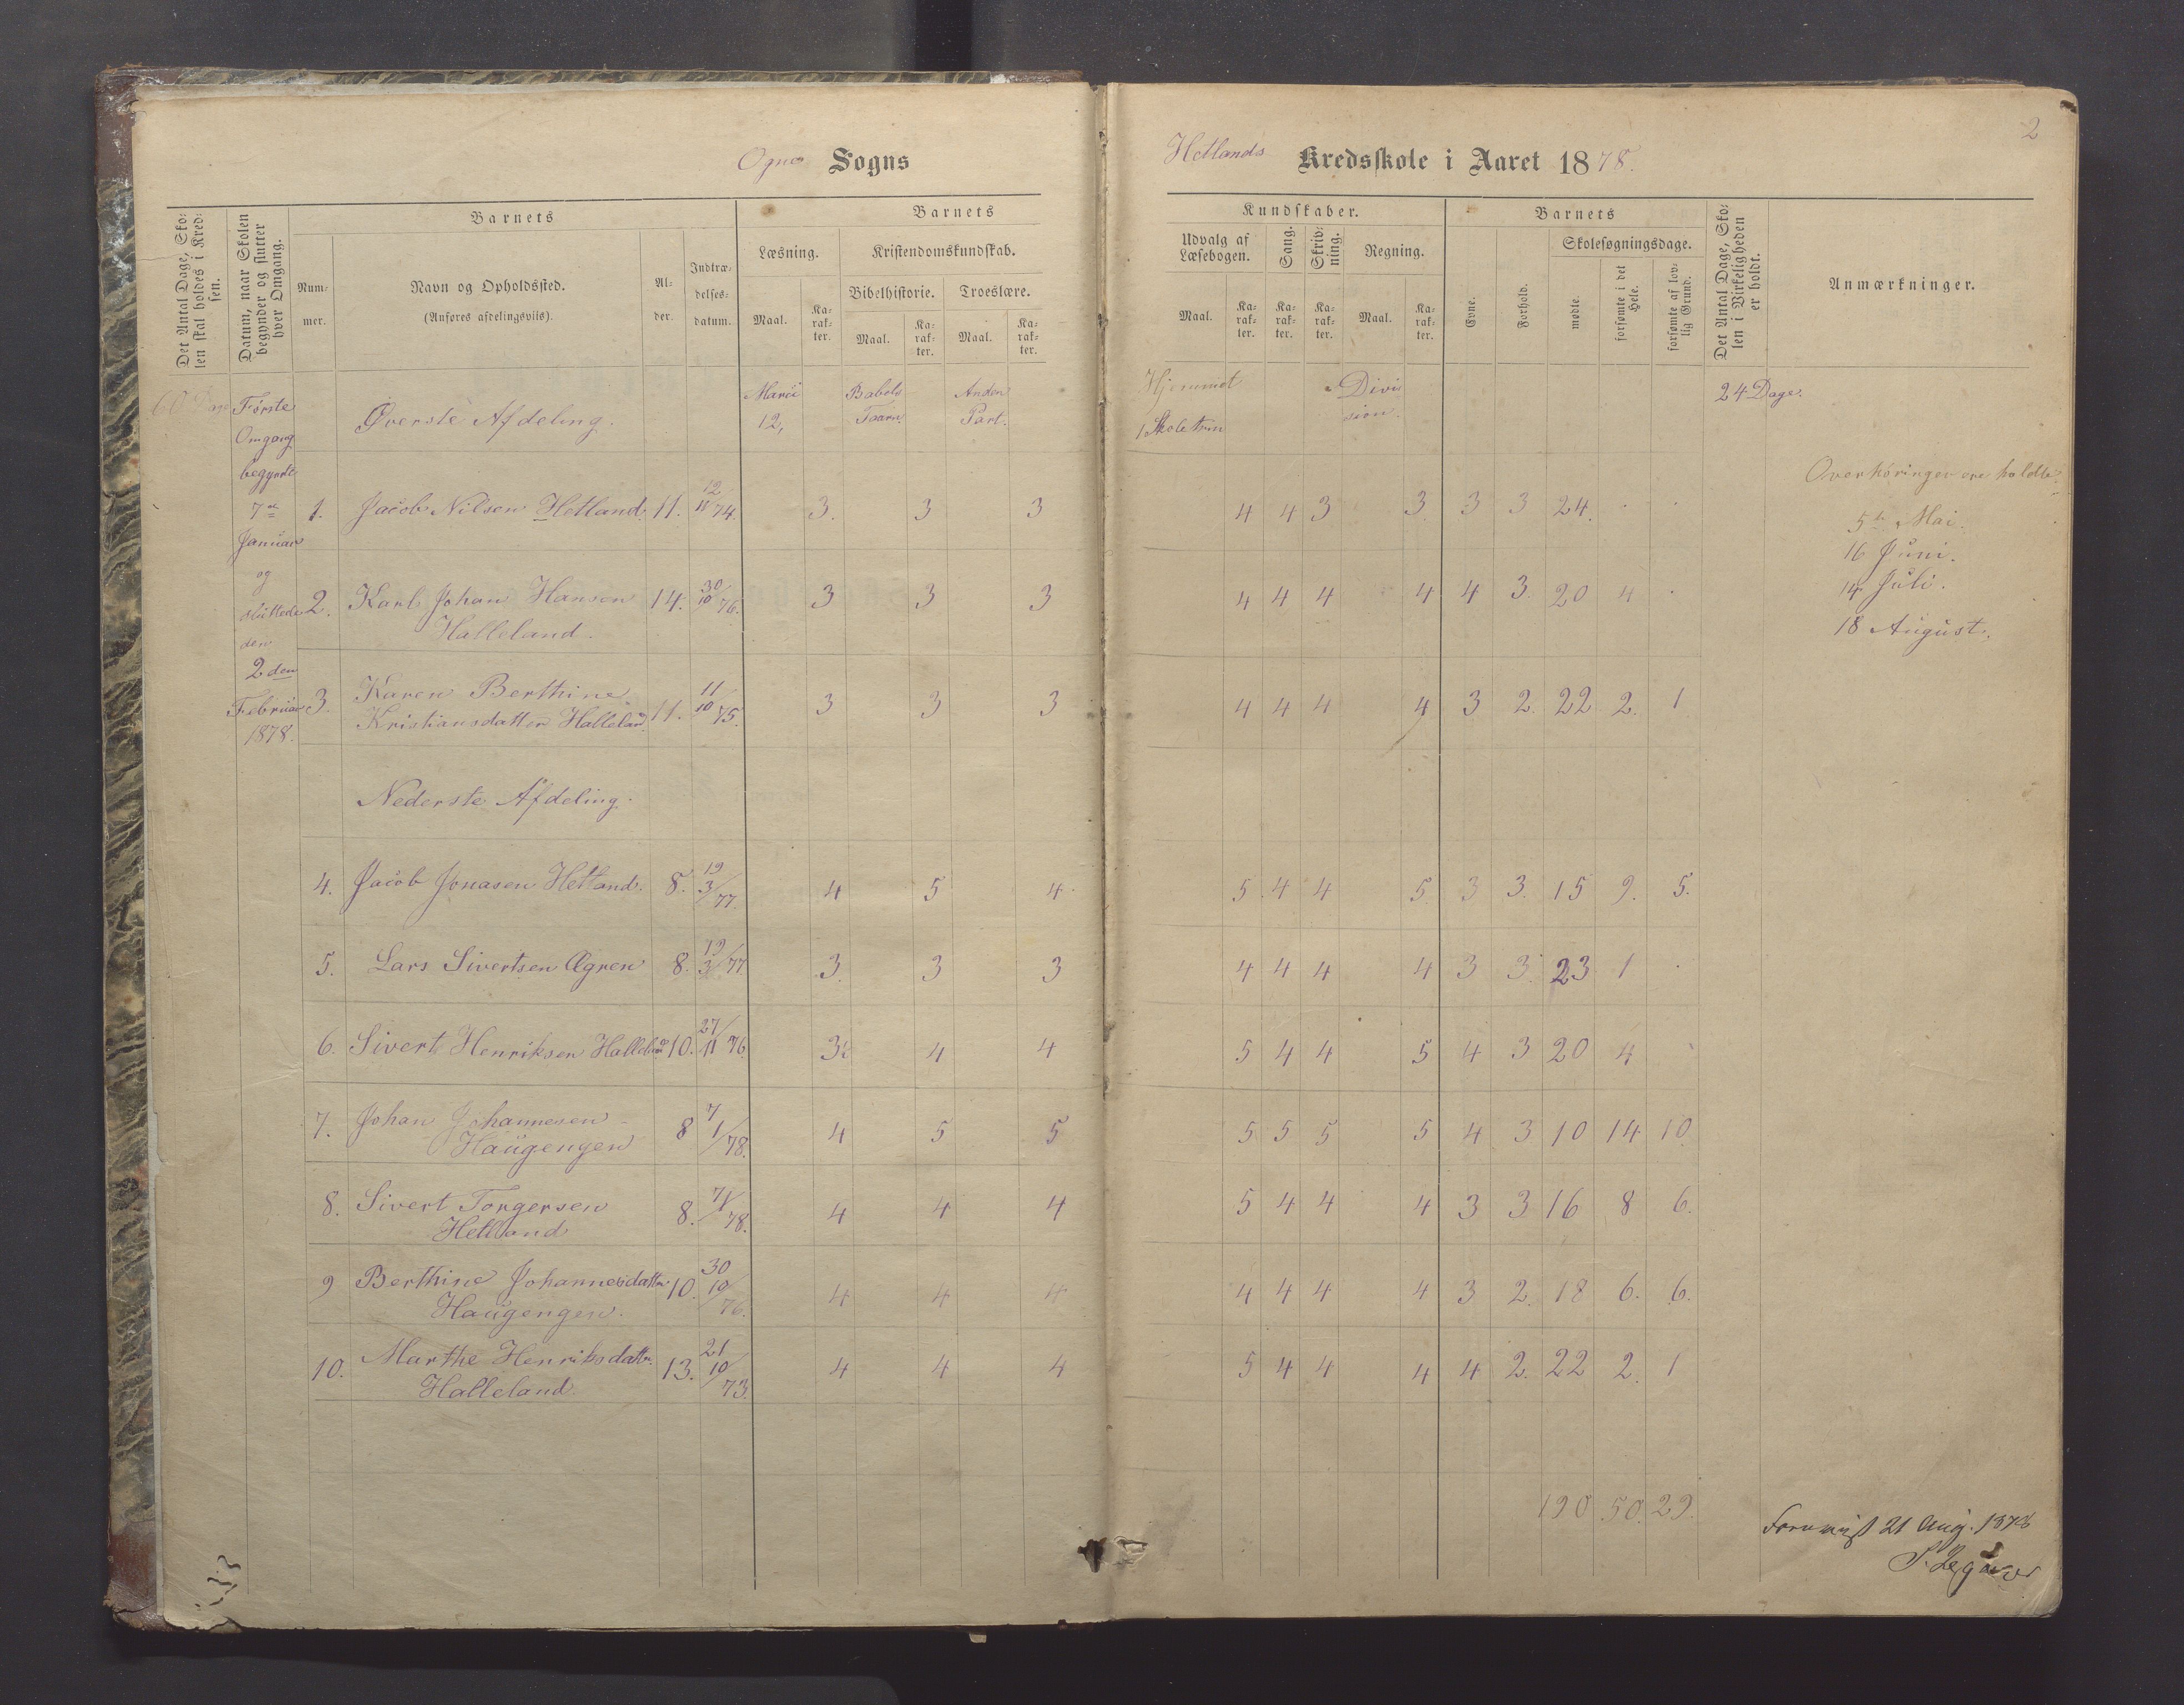 2
Ogne Sogns
Hetlands Kredsskole i Aaret 1878.
Det Antal Dage, Sko-
len skal holdes i Kred-
sen.
Datum, naar Skolen
begynder og slutter
hver Omgang.
Barnets
Num-
mer.
Navn og Opholdssted.
(Anføres afdelingsviis).
Al-
der.
Indtræ-
delses-
datum.
Barnets
Læsning.
Kristendomskundskab.
Bibelhistorie.
Troeslære.
Maal.
Ka-
rak-
ter.
Maal.
Ka-
rak-
ter.
Maal.
Ka-
rak-
ter.
Kundskaber.
Udvalg af
Læsebogen.
Sang.
Skriv-
ning.
Regning.
Maal.
Ka-
rak-
ter.
Ka-
rak-
ter.
Ka-
rak-
ter.
Maal.
Ka-
rak-
ter.
Barnets
Evne.
Forhold.
Skolesøgningsdage.
mødte.
forsømte i det
Hele.
forsømte af lov-
lig Grund.
Det Antal Dage, Sko-
len i Virkeligheden
er holdt.
Anmærkninger.
60 Dage
Første
Omgang
begyndte
7de
Januar
og
sluttede
den
2den
Februar
1878.
Øverste Afdeling.
Marci
12,
Babels
Taarn.
Anden
Part.
Hjemmet
1 Skoletrin
Divi
sion.
24 Dage.
1. Jacob Nilsen Hetland. 11. 12/11 74. 3. 3 3 4 4 3 3. 3 3 24. . .
2. Karl Johan Hansen 14. 30/10 76. 3 3 3 4 4 4 4 4 3. 20 4 .
Halleland.
3. Karen Berthine
Kristiansdatter Halleland 11. 11/10 75. 3 3 3 4 4 4 4 3 2. 22 2. 1
Nederste Afdeling.
4. Jacob Jonasen Hetland. 8. 19/3/77. 4 5 4. 5. 4 4 5. 3 3. 15 9. 5.
5. Lars Sivertsen Øgren 8. 19/3/77 3. 3 3 4 4 4 4 3 3. 23 1 .
6. Sivert Henriksen Halleland 10. 27/11 76 4 4 5 4 4 5 4 3 20 4
7. Johan Johannesen
Haugengen 8 7/1/78. 4 5 5 5 5 5 5 4 3 10 14 10.
8. Sivert Torgersen
Hetland 8. 7/1/78. 4 4 4 5 4 4 4 3 3 16 8 6.
9 Berthine Johannesdatter
Haugengen. 10. 30/10/76. 4 4 4 4 4 4 4 3 2. 18 6. 6.
10. Marthe Henriksdatter.
Halleland. 13. 21/10/73. 4 4 4 5 4 4 4 4 2. 22 2. 1
190 50. 29.
Overhøringer ere holdte:
5te Mai.
16 Juni.
14 Juli.
18 August.
Forevist 21 Aug. 1878